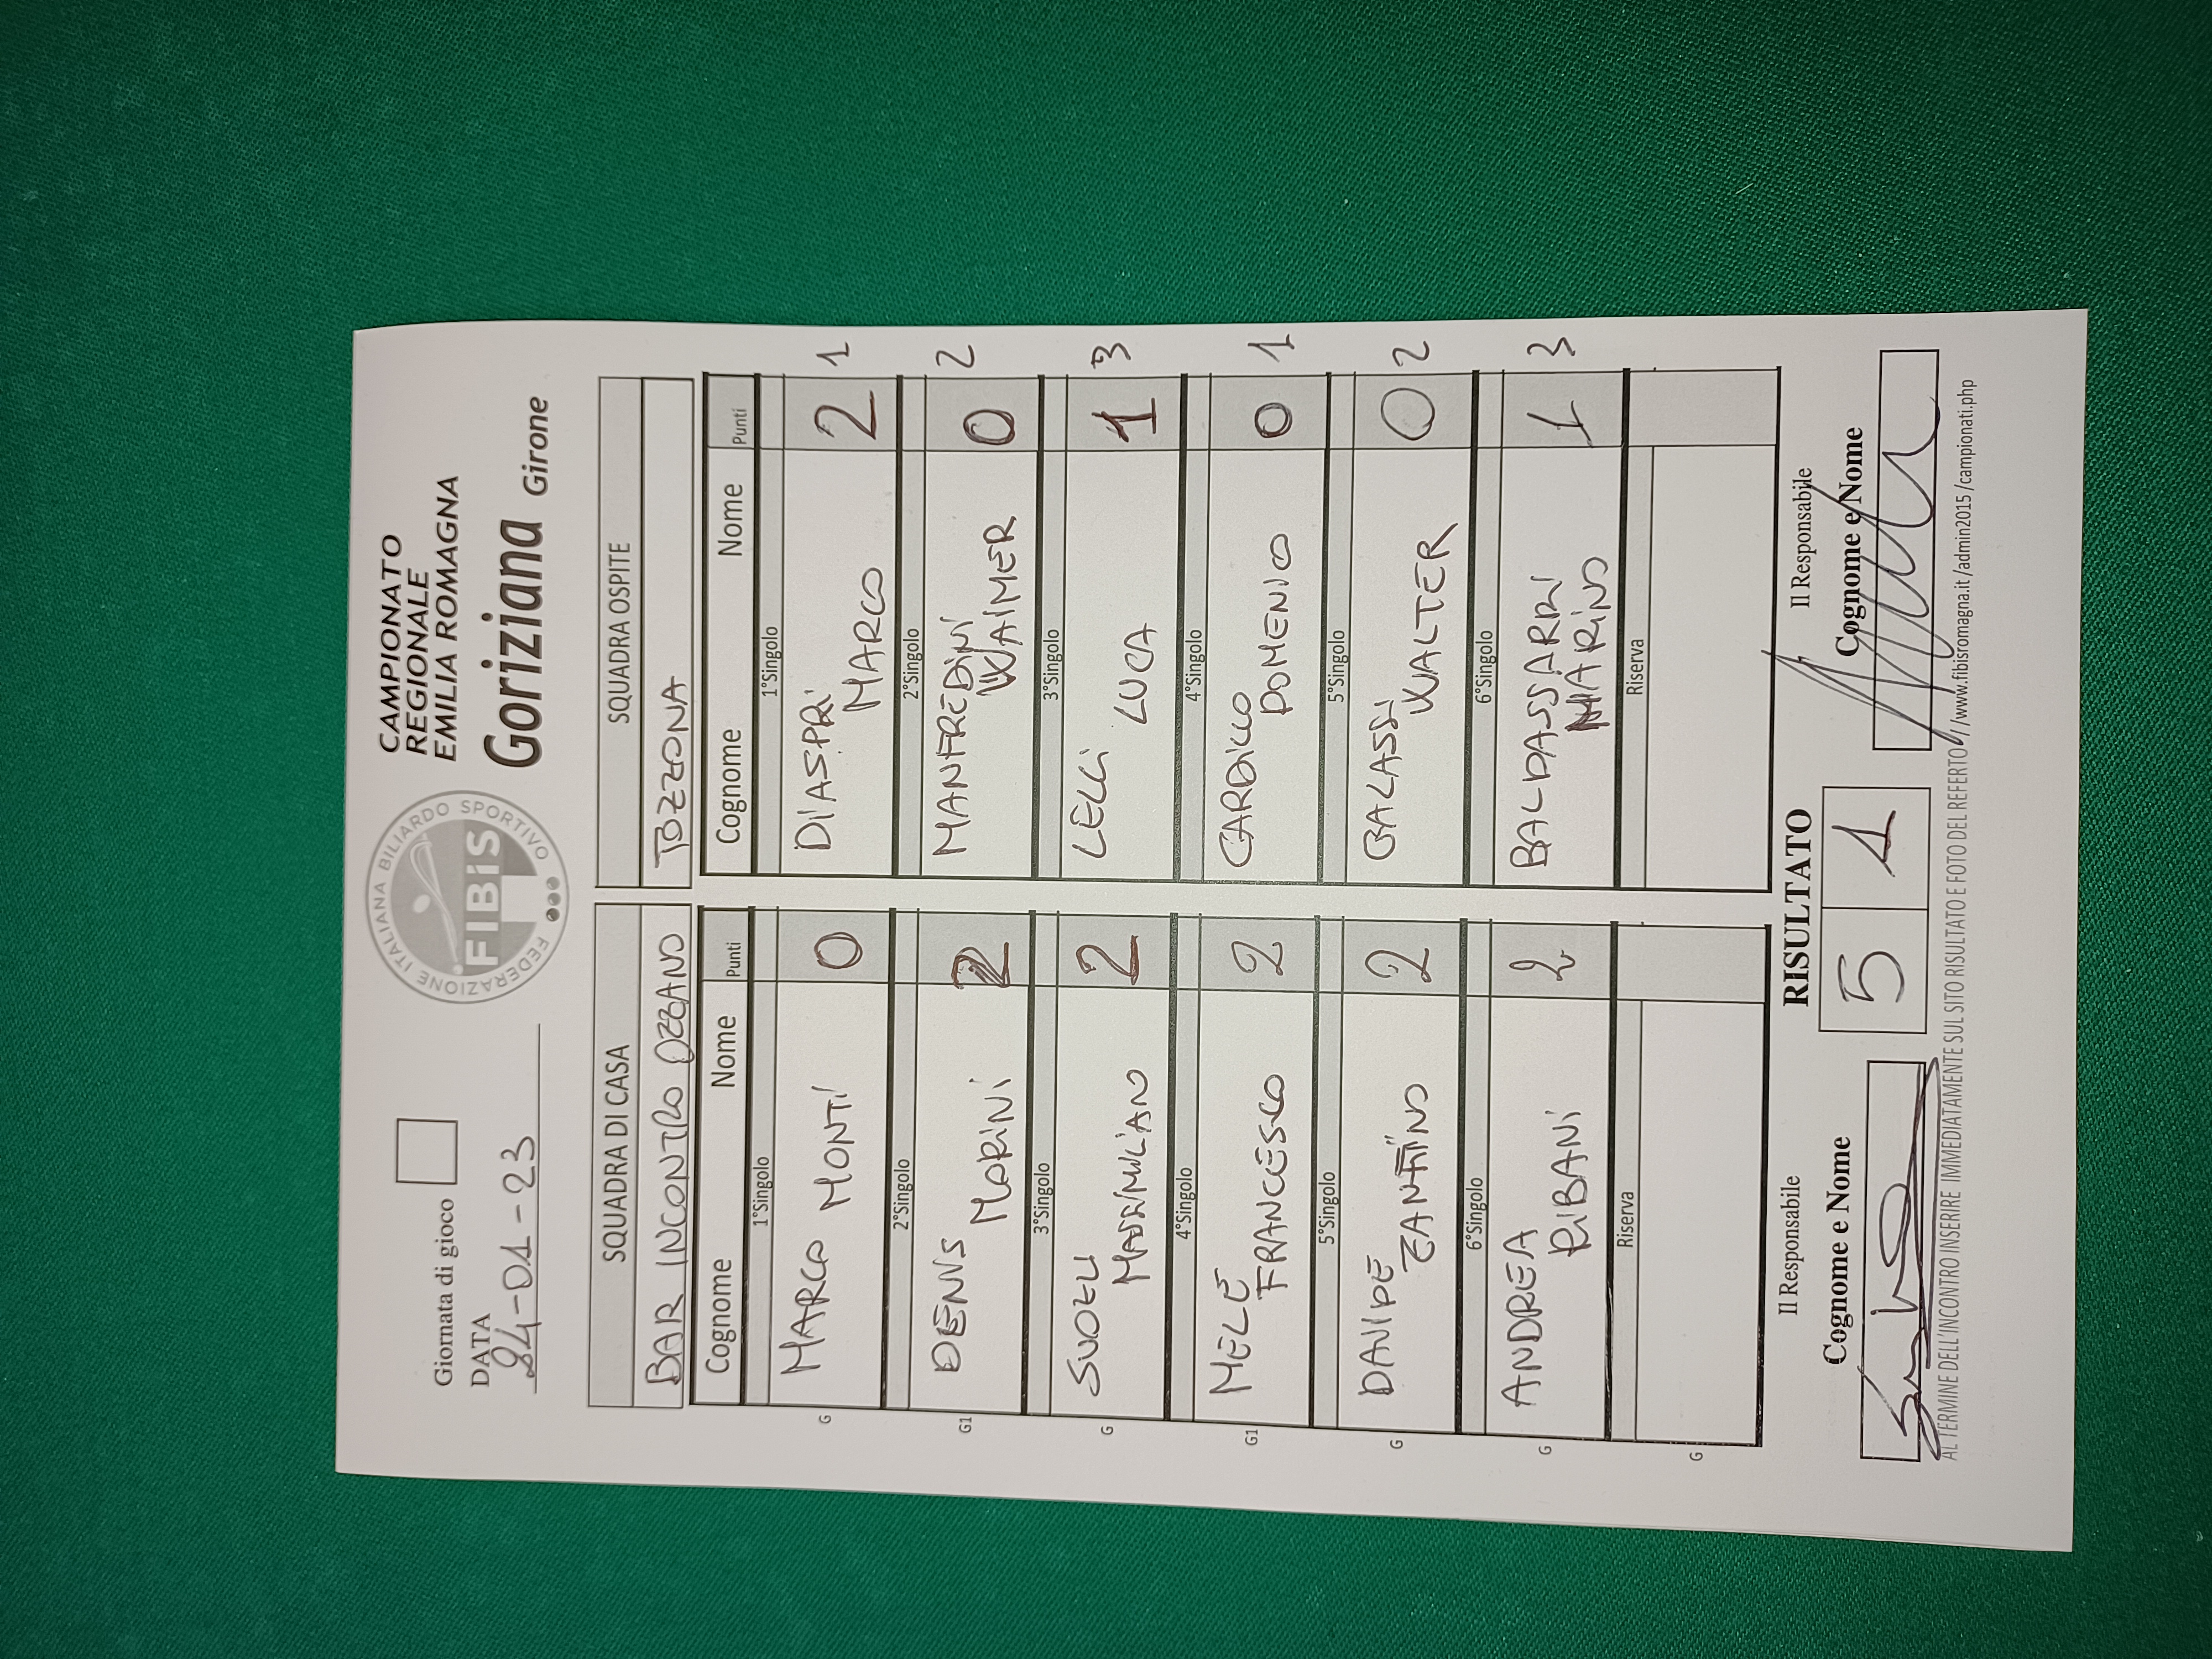 Giornata di gioco
DATA
24-01-23
FEDERAZIONE ITALIANA BILIARDO SPORTIVO
FIBiS
CAMPIONATO
REGIONALE
EMILIA ROMAGNA
Goriziana Girone
SQUADRA DI CASA
BAR INCONTRO OZZANO
Cognome Nome Punti
1°Singolo
G MARCO MONTI 0
2°Singolo
G1 DENNIS
MORINI 2
3°Singolo
G
MASSIMILIANO 2
4°Singolo
G1 MELE
FRANCESCO 2
5°Singolo
G DAVIDE
2
6°Singolo
G ANDREA
RIBANI 2
Riserva
G
SQUADRA OSPITE
TOZZONA
Cognome Nome Punti
1°Singolo
DIASPRI
MARCO 2 1
2°Singolo
MANFREDINI
WAIMER 0 2
3°Singolo
LELLI LUCA 1 3
4°Singolo
CARDILLO
DOMENICO 0 1
5°Singolo
GALASSI
WALTER 0 2
6°Singolo
BALDASSARRI
MARINO 1 3
Riserva
Il Responsabile
Cognome e Nome
RISULTATO
5 1
Il Responsabile
Cognome e Nome
AL TERMINE DELL'INCONTRO INSERIRE IMMEDIATAMENTE SUL SITO RISULTATO E FOTO DEL REFERTO //www.fibisromagna.it /admin2015 /campionati.php